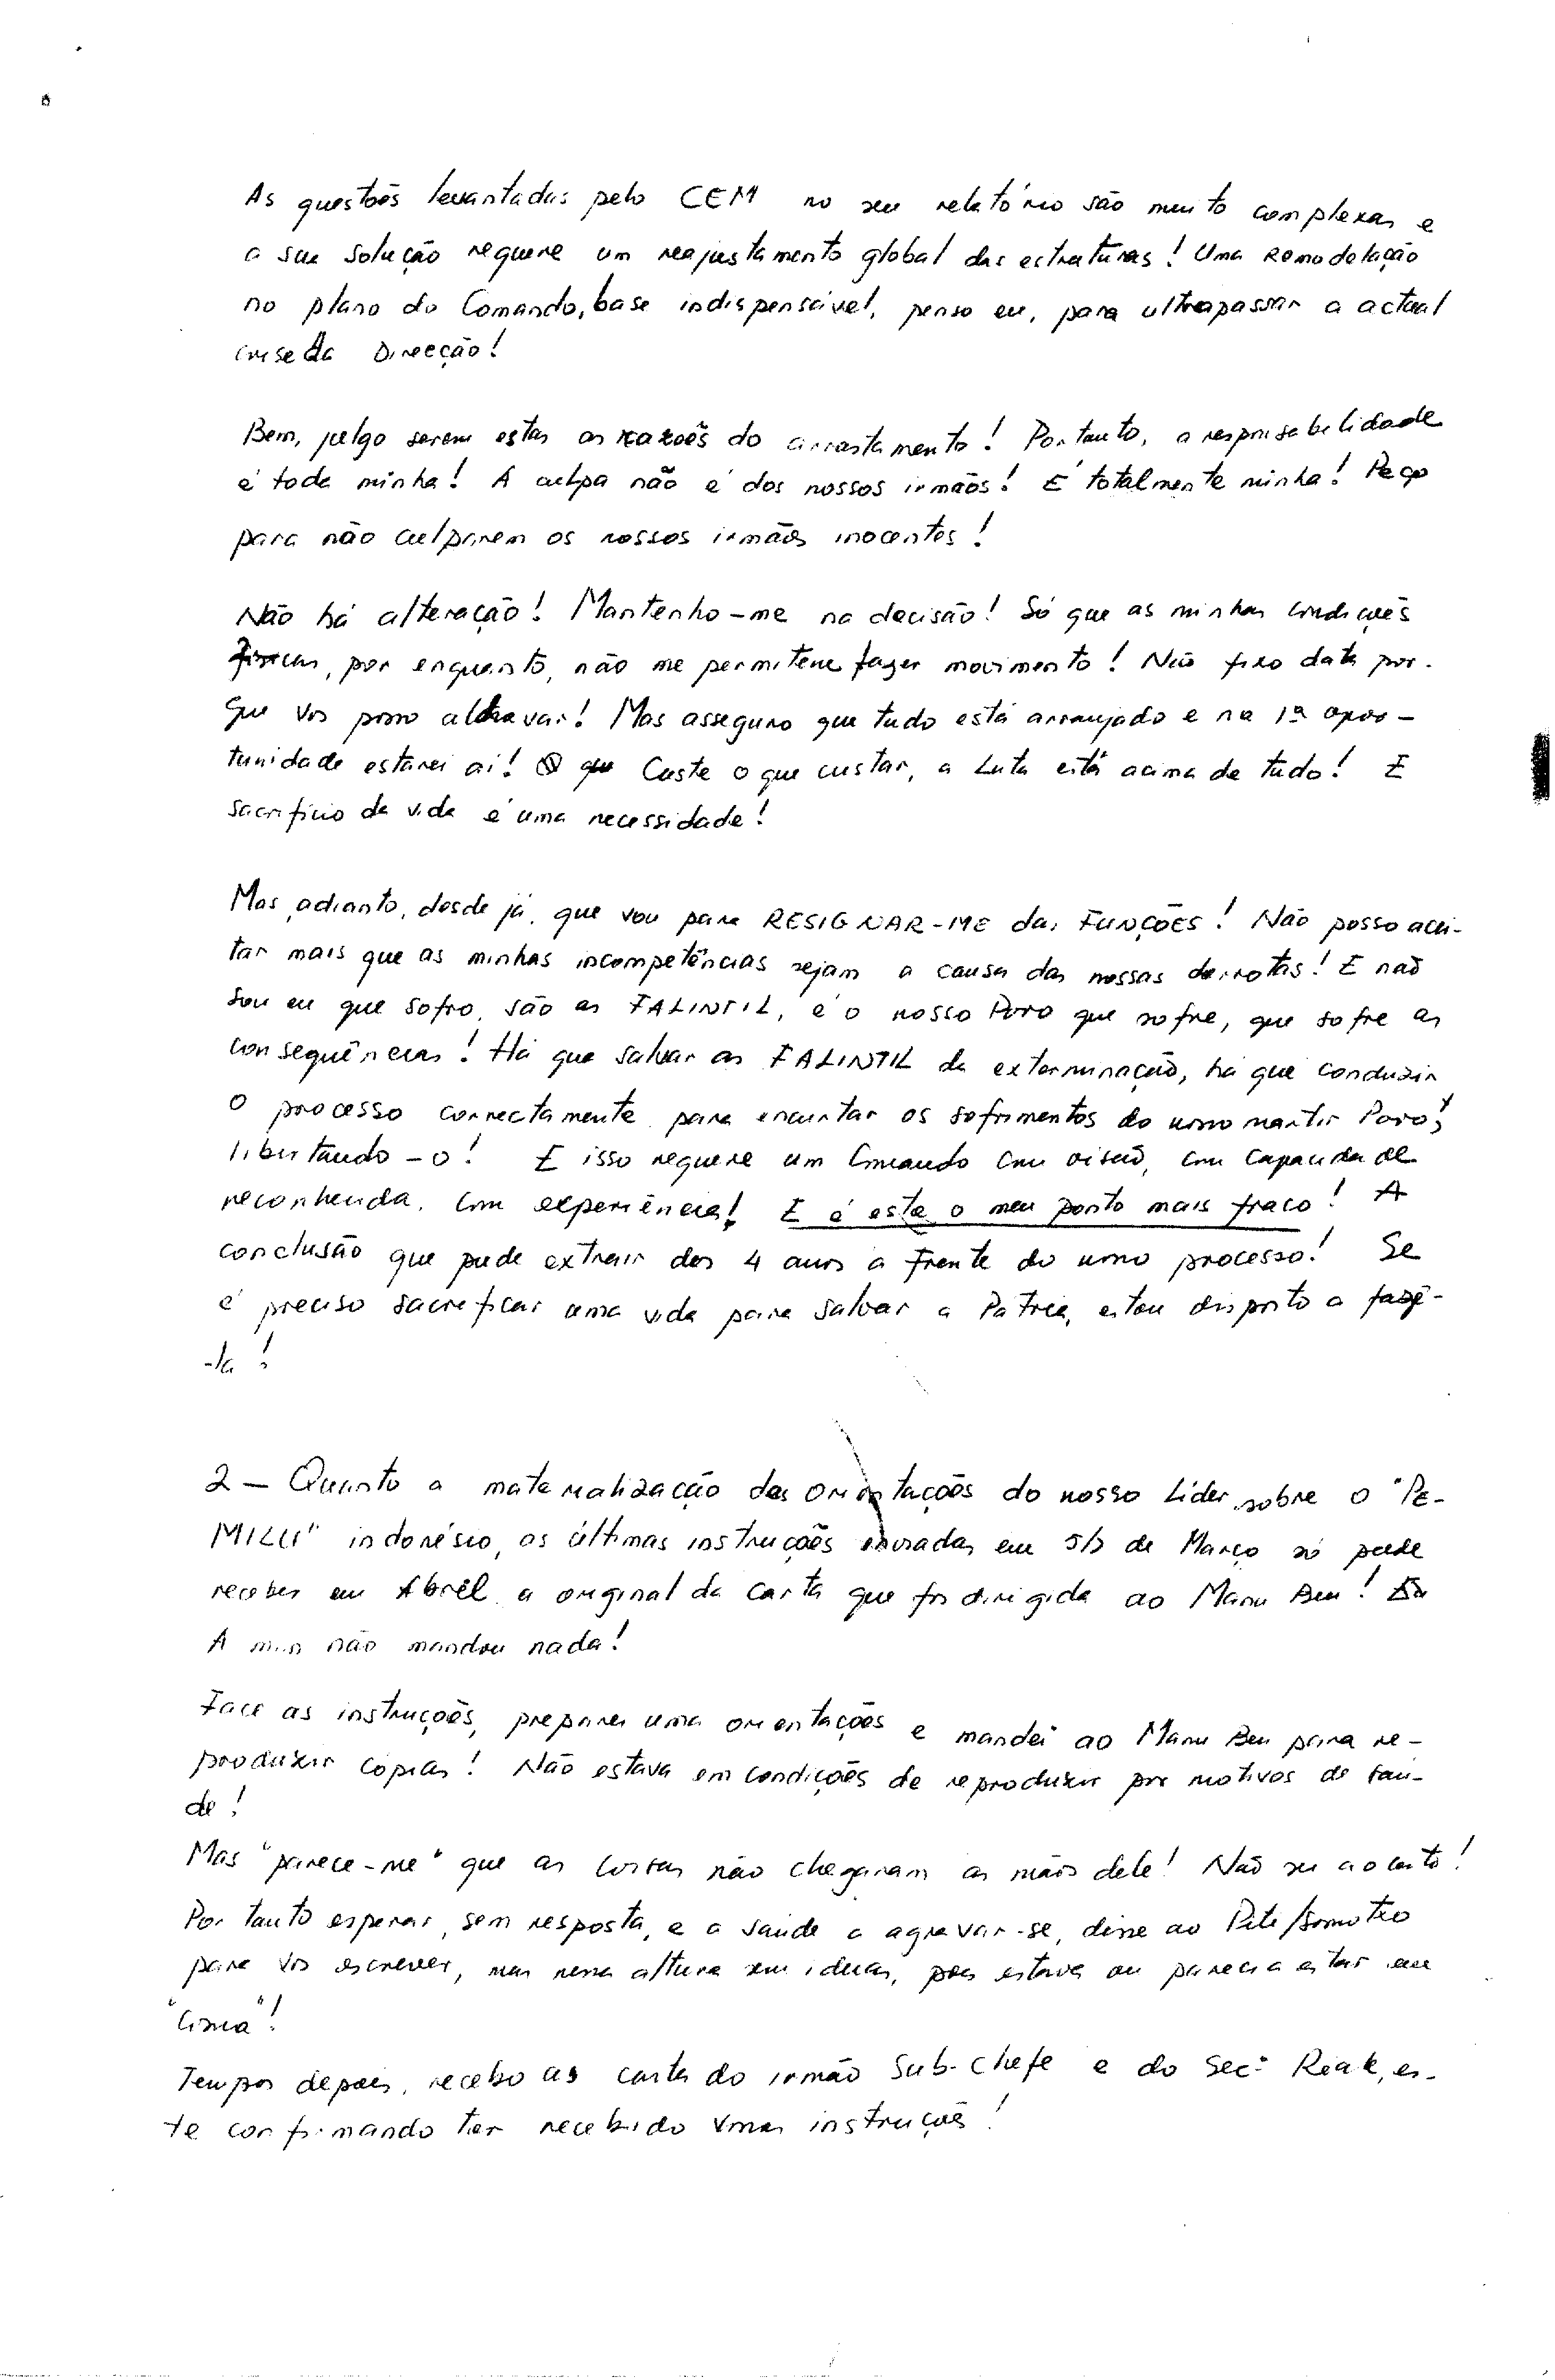 As questões levantadas pelo CEM no seu relatório são muito complexas e
a sua solução requere um reajustamento global das estruturas! Uma Remodelação
no plano do Comando, base indispensável, penso eu, para ultrapassar a actual
crise da Direcção!
Bem, julgo serem estas as razões do arrastamento! Portanto, a responsabilidade
é toda minha! A culpa não é dos nossos irmãos! É totalmente minha! Peço
para não culparem os nossos irmãos inocentes!
Não há alteração! Mantenho-me na decisão! Só que as minhas condições
físicas, por enquanto, não me permitem fazer movimento! Não fixo data por-
que vos posso! Mas asseguro que tudo está arranjado e na 1ª opor-
tunidade estarei aí! Custe o que custar, a Luta está acima de tudo! E
sacrifício da vida é uma necessidade!
Mas adianto, desde já, que vou para RESIGNAR-ME das FUNÇÕES! Não posso acei-
tar mais que as minhas incompetências sejam a causa das nossas derrotas! E não
sou eu que sofro, são as FALINTIL, é o nosso Povo que sofre, que sofre as
consequências! Há que salvar as FALINTIL da exterminação, há que conduzir
o processo correctamente para encurtar os sofrimentos do nosso martir Povo,
libertando-o! E isso requere um Comando com visão, com capacidade
reconhecida, com experiência! E é este o meu ponto mais fraco! A
conclusão que pude extrair dos 4 anos a frente do nosso processo! Se
é preciso sacrificar uma vida para salvar a Pátria, estou disposto a fazê-
-la!
2 - Quanto a materialização das orientações do nosso Líder sobre o "PE-
MILU" indonésio, as últimas instruções enviadas em 5/3 de Março só pude
receber em Abril a original da carta que foi dirigida ao Manu Ben!
A mim não mandou nada!
Face as instruções, preparei uma orientações e mandei ao Manu Ben para re-
produzir copias! Não estava em condições de reproduzir por motivos de sau-
de!
Mas "parece-me" que as coisas não chegaram as mãos dele! Não sei ao certo!
Por tanto esperar, sem resposta, e a saúde a agravar-se, disse ao Pite/Somotxo
para vos escrever, mas nessa altura sem ideias, pois estava ou parecia estar em
"coma"!
Tempos depois, recebo as cartas do irmão Sub-Chefe e do Secº Reak, es-
te confirmando ter recebido vossas instruções!